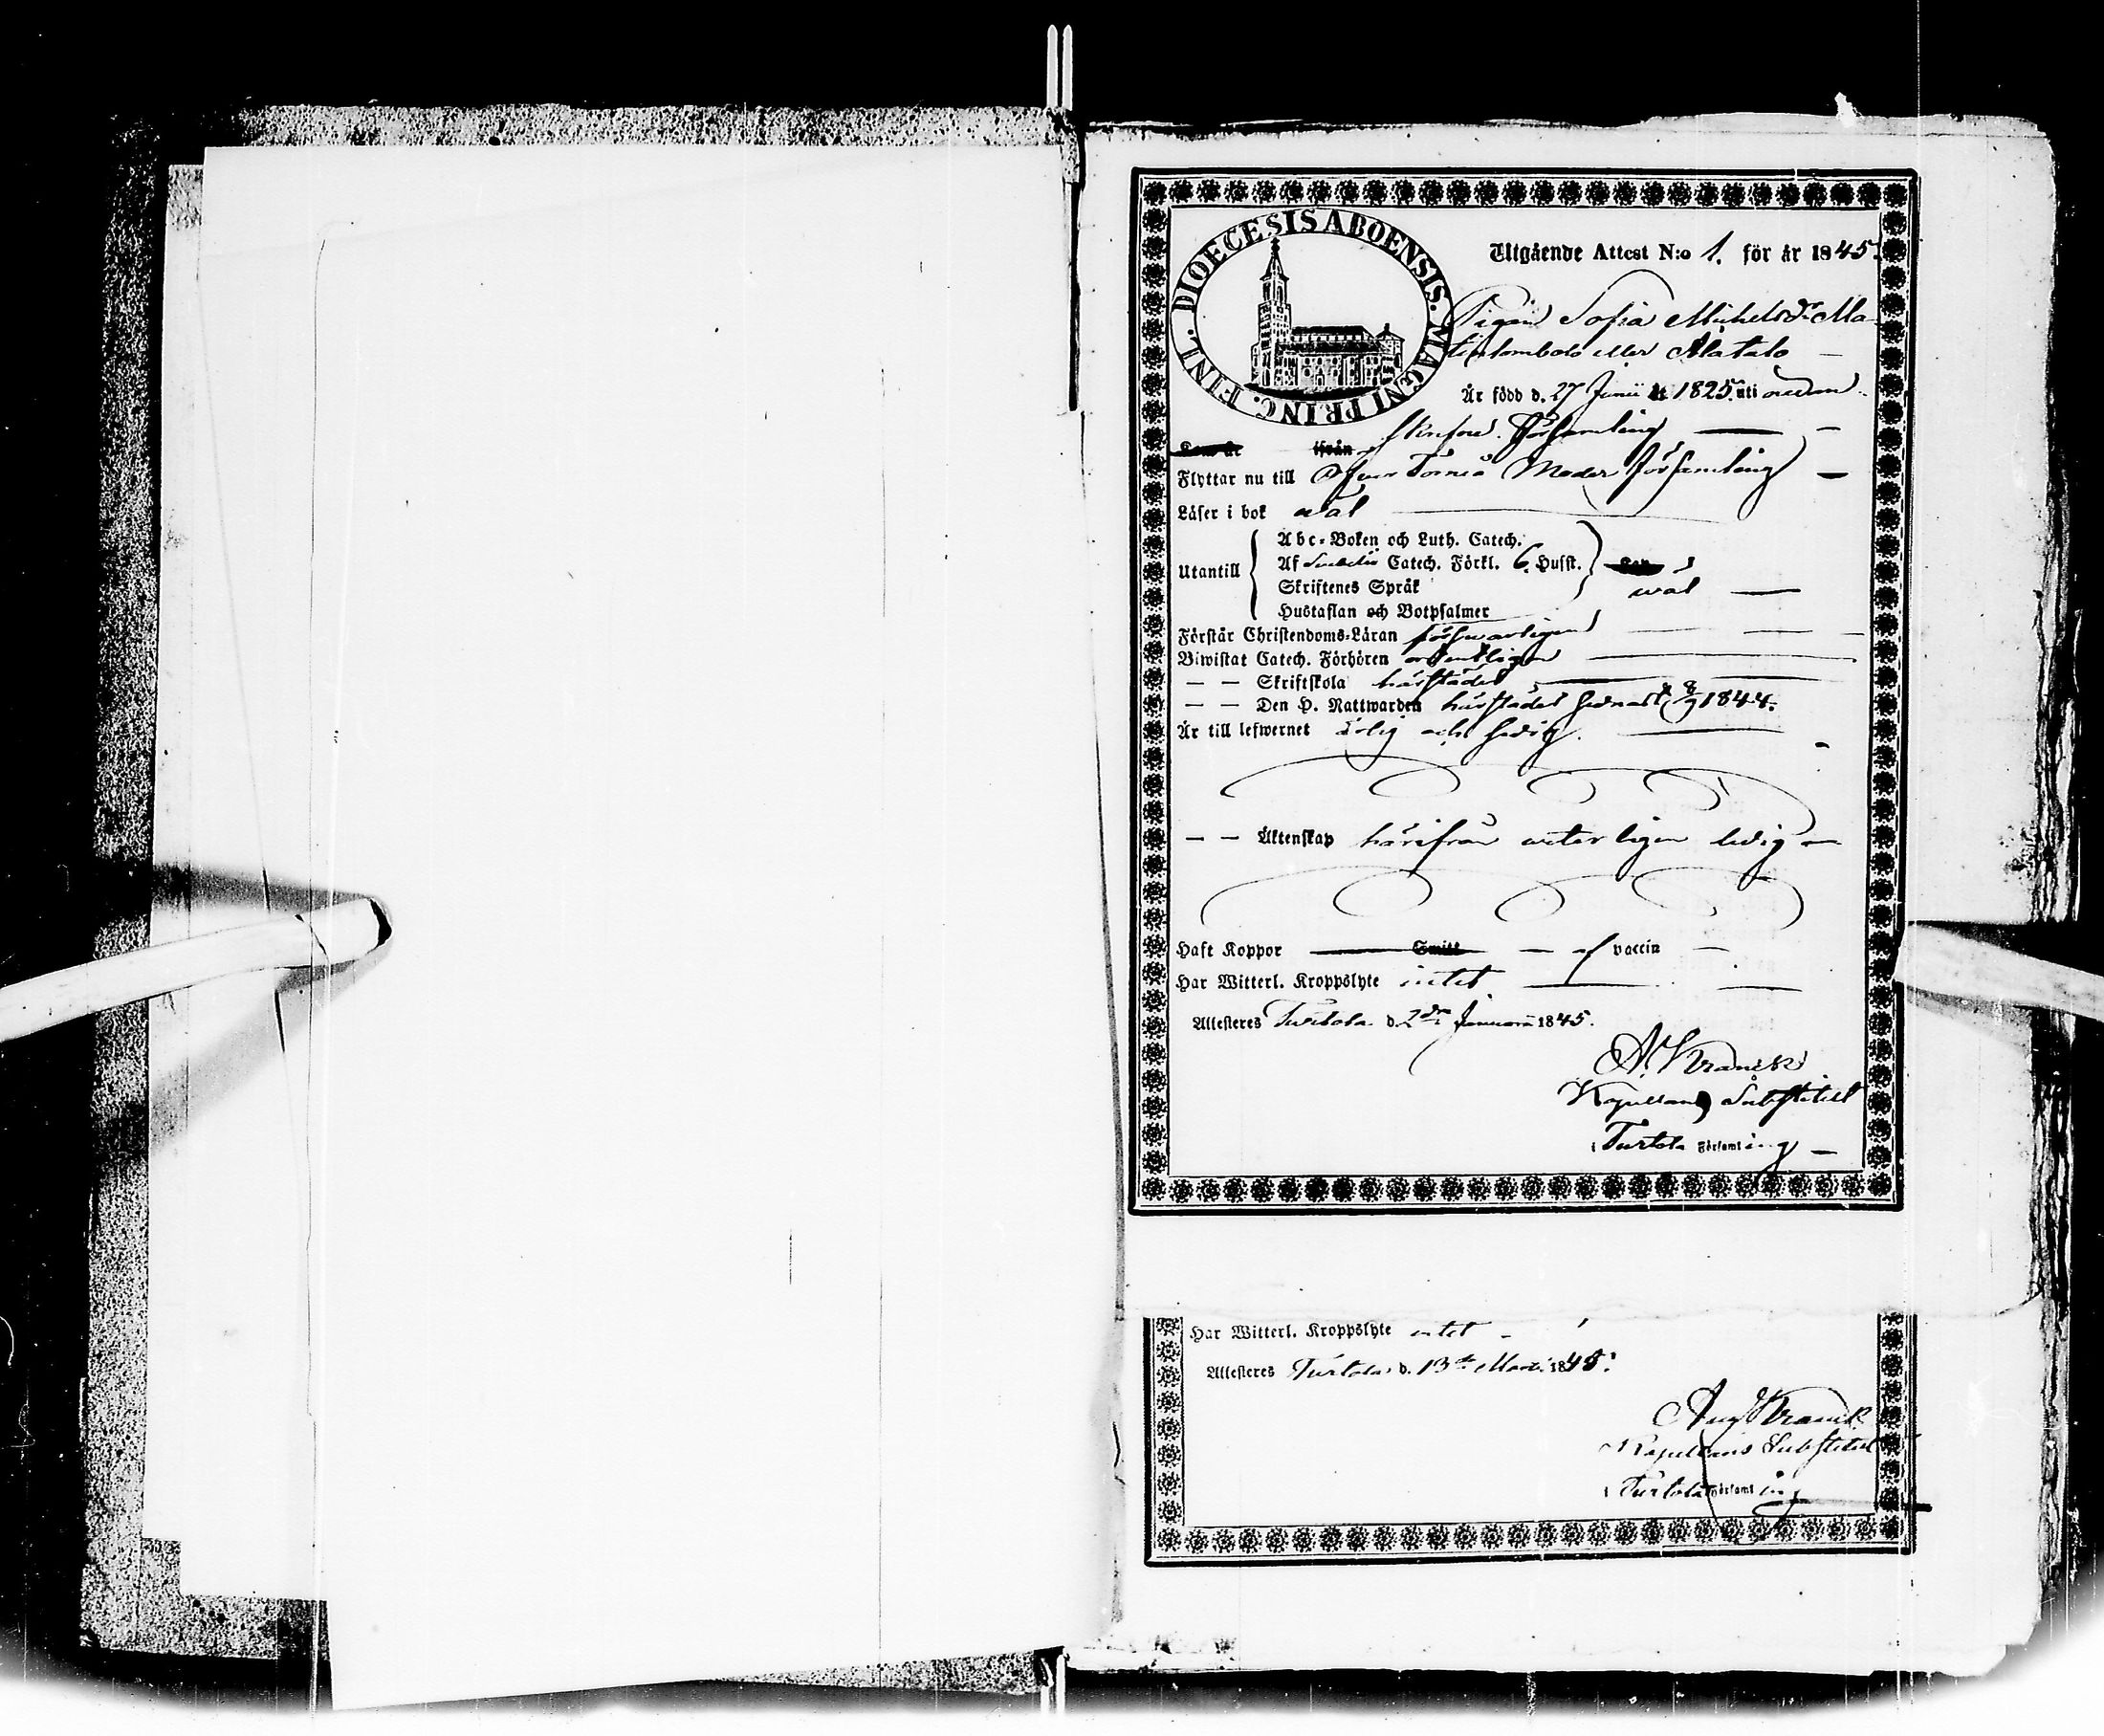 DIOECESIS ABOENSIS. MAGNI PRINC. FINL.
Utgående Attest N:o 1. för år 1845.
Pigan Sofia Michelsdr Ma-
eller Alatalo —
Är född d. 27 Junii 1825 uti ofvan-
skrifne Församling —
Kom år ifrån
Flyttar nu till Öfver Torneå Moder församling —
Läser i bok wäl
Utantill
Abc-Boken och Luth. Catech.
Af Svebelii Catech. Förkl. 6. Hufst.
Skriftenes Språk wäl —
Hustaflan och Botpsalmer
Förstår Christendoms-Läran försvarligen — — —
Biwistat Catech. Förhören ordentligen
— — Skriftskola härstädes
— — Den H. Nattwarden härstädes sednast 8/9 1844.
Är till lefwernet ärlig och sedig.
— — Äktenskap härifrån veterligen ledig —
Haft Koppor Smitt — af vaccin —
Har Witterl. Kroppslyte intet
Attesteres Turtola d. 2dra Januarii 1845.
A. Kranck
Kapellans Substitut
i Turtola Församling —
Har Witterl. Kroppslyte intet -
Attesteres Turtola d. 13de Martii 1845.
Aug Kranck
Kapellans Substitut
i Turtola Församling